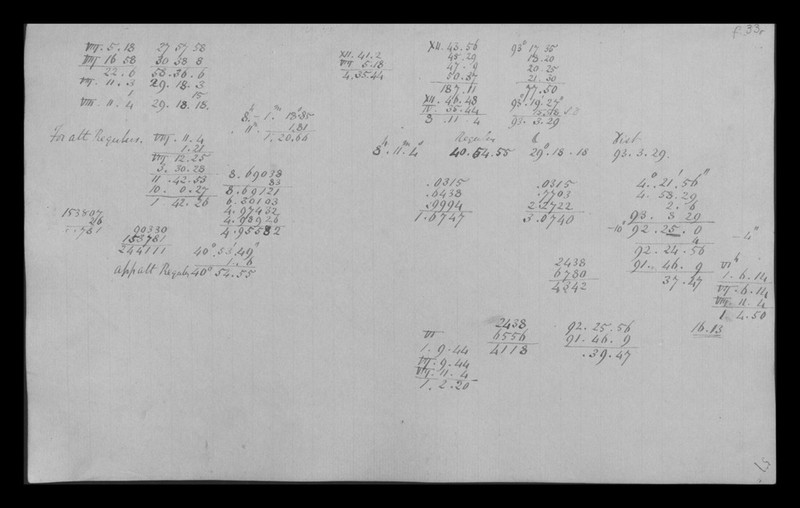 p. 33r
VIII. 5. 18 27 57 58
VIII 16 58 30 38 8
22. 6 58. 36. 6
VIII. 11. 3 29. 18. 3
1 15
VIII. 11. 4 29. 18. 18.
XII. 41. 2
VIII 5. 18
4. 35. 44
XII. 45. 56
45. 29
47. 9
187. 11
XII. 46. 48
3 11 4
93° 17. 35
18. 20
20. 25
21. 30
77. 50
93. 19. 27
93. 3. 29
8h - 1.m 18s.35
11 1.81
1. 20.66
For alt Regulus. VIII. 11. 4
1. 21
VIII 12. 25
3. 30. 28
11. 42. 53
10. 0. 27
1 42. 26
8. 69038
83
8. 69121
4. 97432
4. 95582
153807
26
153781
90330
153781
244111
40°. 53'. 49"
1. 6
app alt Regulus 40° 54. 55
Regulus Dist
8h. 11m. 4s 40. 54. 55 29°. 18. 18 93. 3. 29.
.0315
.6438
.9994
1. 6747
.0315
.7703
2.2722
3. 0740
4°. 21'. 56"
4. 58. 29
2. 6
93. 3 29
-10" 92. 25. 0 - 4"
4
92. 24. 56
91. 46. 9
37. 47
2438
6780
4342
VIh
1. 6. 14
VII. 6. 14
VIII. 11. 4
1. 4. 50
16. 13
2438
6556
4118
92. 25. 56
91. 46. 9
. 39. 47
VI
1. 9. 44
VII. 9. 44
VIII. 11. 4
1. 2. 20